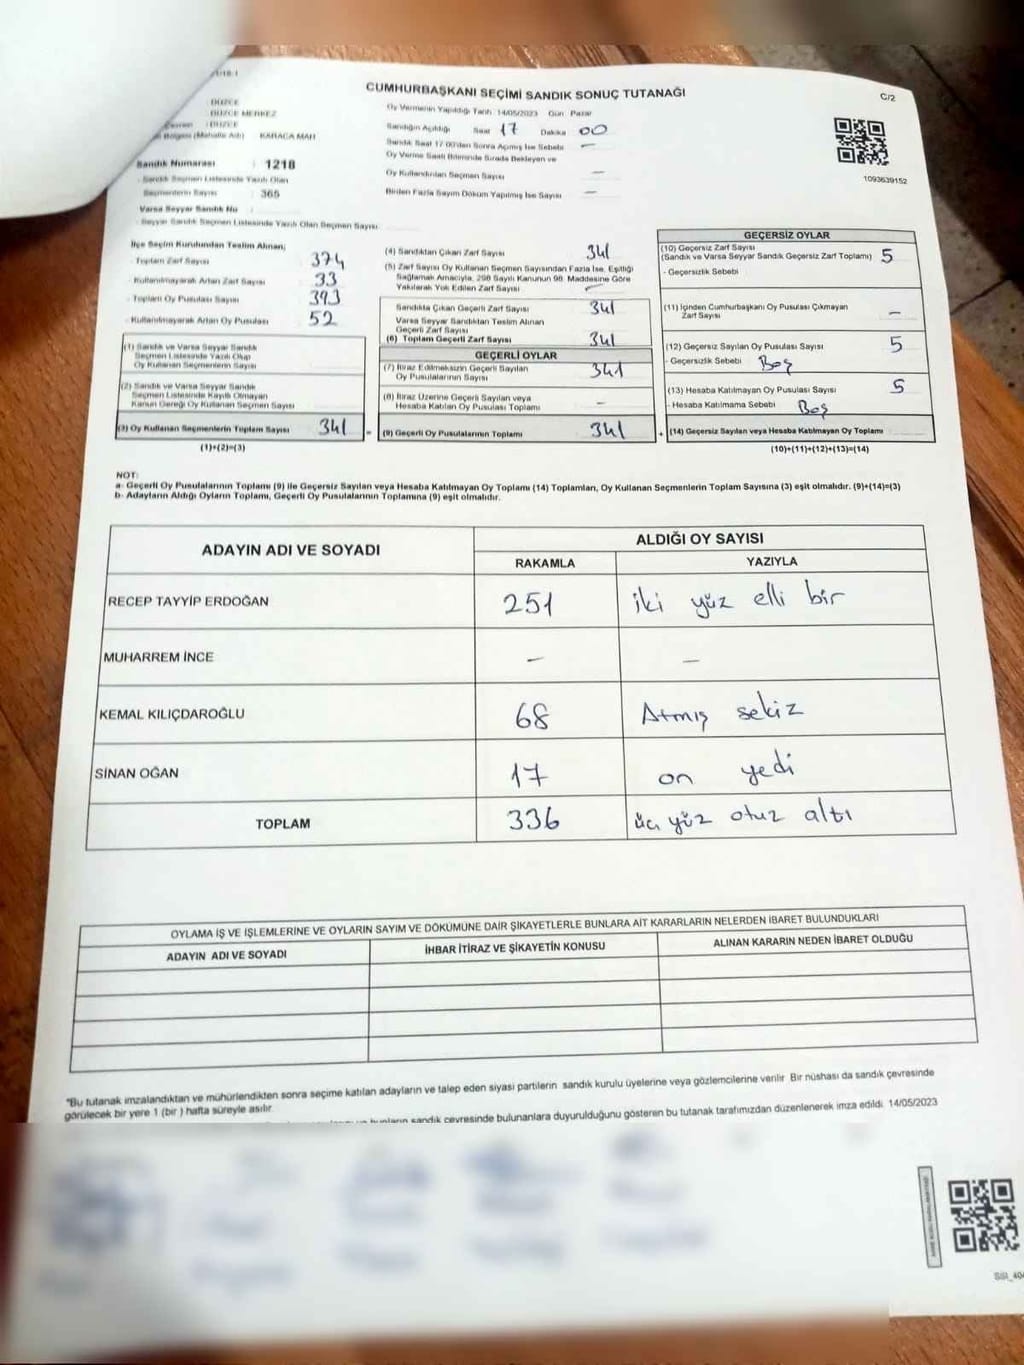 CUMHURBAŞKANI SEÇİMİ SANDIK SONUÇ TUTANAĞI
C/2
DÜZCE
DÜZCE MERKEZ
DÜZCE
Bölgesi (Mahalle Adı) KARACA MAH
Sandık Numarası : 1218
Sandık Seçmen Listesinde Yazılı Olan
Seçmenlerin Sayısı : 365
Varsa Seyyar Sandık No :
Seyyar Sandık Seçmen Listesinde Yazılı Olan Seçmen Sayısı
Oy Vermenin Yapıldığı Tarih 14/05/2023 Gün Pazar
Sandığın Açıldığı Saat 17 Dakika 00
Sandık Saat 17 00'den Sonra Açılmış İse Sebebi —
Oy Verme Saati Bitiminde Sırada Bekleyen ve
Oy Kullandırılan Seçmen Sayısı —
Birden Fazla Sayım Döküm Yapılmış İse Sayısı —
1093639152
İlçe Seçim Kurulundan Teslim Alınan;
- Toplam Zarf Sayısı 374
- Kullanılmayarak Artan Zarf Sayısı 33
- Toplam Oy Pusulası Sayısı 393
- Kullanılmayarak Artan Oy Pusulası 52
(1) Sandık ve Varsa Seyyar Sandık
Seçmen Listesinde Yazılı Olup
Oy Kullanan Seçmenlerin Sayısı
(2) Sandık ve Varsa Seyyar Sandık
Seçmen Listesinde Kayıtlı Olmayan
Kanun Gereği Oy Kullanan Seçmen Sayısı
(3) Oy Kullanan Seçmenlerin Toplam Sayısı 341
(1)+(2)=(3)
(4) Sandıktan Çıkan Zarf Sayısı 341
(5) Zarf Sayısı Oy Kullanan Seçmen Sayısından Fazla İse, Eşitliği
Sağlamak Amacıyla, 298 Sayılı Kanunun 98. Maddesine Göre
Yakılarak Yok Edilen Zarf Sayısı —
Sandıkta Çıkan Geçerli Zarf Sayısı 341
Varsa Seyyar Sandıktan Teslim Alınan
Geçerli Zarf Sayısı
(6) Toplam Geçerli Zarf Sayısı 341
GEÇERLİ OYLAR
(7) İtiraz Edilmeksizin Geçerli Sayılan
Oy Pusulalarının Sayısı 341
(8) İtiraz Üzerine Geçerli Sayılan veya
Hesaba Katılan Oy Pusulası Toplamı —
= (9) Geçerli Oy Pusulalarının Toplamı 341
GEÇERSİZ OYLAR
(10) Geçersiz Zarf Sayısı
(Sandık ve Varsa Seyyar Sandık Geçersiz Zarf Toplamı) 5
- Geçersizlik Sebebi
(11) İçinden Cumhurbaşkanı Oy Pusulası Çıkmayan
Zarf Sayısı —
(12) Geçersiz Sayılan Oy Pusulası Sayısı 5
- Geçersizlik Sebebi Boş
(13) Hesaba Katılmayan Oy Pusulası Sayısı 5
- Hesaba Katılmama Sebebi Boş
+ (14) Geçersiz Sayılan veya Hesaba Katılmayan Oy Toplamı
(10)+(11)+(12)+(13)=(14)
NOT:
a- Geçerli Oy Pusulalarının Toplamı (9) ile Geçersiz Sayılan veya Hesaba Katılmayan Oy Toplamı (14) Toplamları, Oy Kullanan Seçmenlerin Toplam Sayısına (3) eşit olmalıdır. (9)+(14)=(3)
b- Adayların Aldığı Oyların Toplamı, Geçerli Oy Pusulalarının Toplamına (9) eşit olmalıdır.
ADAYIN ADI VE SOYADI ALDIĞI OY SAYISI
RAKAMLA YAZIYLA
RECEP TAYYİP ERDOĞAN 251 iki yüz elli bir
MUHARREM İNCE — —
KEMAL KILIÇDAROĞLU 68 Atmış sekiz
SİNAN OĞAN 17 on yedi
TOPLAM 336 üç yüz otuz altı
OYLAMA İŞ VE İŞLEMLERİNE VE OYLARIN SAYIM VE DÖKÜMÜNE DAİR ŞİKAYETLERLE BUNLARA AİT KARARLARIN NELERDEN İBARET BULUNDUKLARI
ADAYIN ADI VE SOYADI İHBAR İTİRAZ VE ŞİKAYETİN KONUSU ALINAN KARARIN NEDEN İBARET OLDUĞU
"Bu tutanak imzalandıktan ve mühürlendikten sonra seçime katılan adayların ve talep eden siyasi partilerin sandık kurulu üyelerine veya gözlemcilerine verilir Bir nüshası da sandık çevresinde
görülecek bir yere 1 (bir) hafta süreyle asılır.
sandık çevresinde bulunanlara duyurulduğunu gösteren bu tutanak tarafımızdan düzenlenerek imza edildi. 14/05/2023